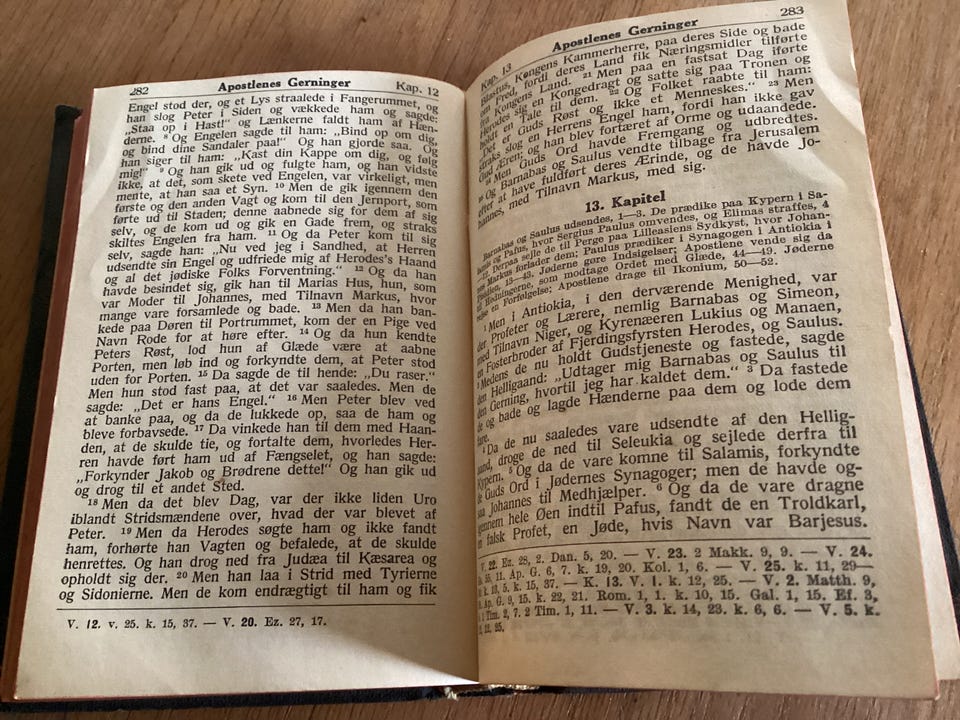 282 Apostlenes Gerninger Kap. 12
Engel stod der, og et Lys straalede i Fangerummet, og
han slog Peter i Siden og vækkede ham og sagde:
„Staa op i Hast!“ og Lænkerne faldt ham af Hæn-
derne. 8 Og Engelen sagde til ham: „Bind op om dig,
og bind dine Sandaler paa!“ Og han gjorde saa. Og
han siger til ham: „Kast din Kappe om dig, og følg
mig!“ 9 Og han gik ud og fulgte ham, og han vidste
ikke, at det, som skete ved Engelen, var virkeligt, men
mente, at han saa et Syn. 10 Men de gik igennem den
første og den anden Vagt og kom til den Jernport, som
førte ud til Staden; denne aabnede sig for dem af sig
selv, og de kom ud og gik en Gade frem, og straks
skiltes Engelen fra ham. 11 Og da Peter kom til sig
selv, sagde han: „Nu ved jeg i Sandhed, at Herren
udsendte sin Engel og udfriede mig af Herodes's Haand
og al det jødiske Folks Forventning.“ 12 Og da han
havde besindet sig, gik han til Marias Hus, hun, som
var Moder til Johannes, med Tilnavn Markus, hvor
mange vare forsamlede og bade. 13 Men da han ban-
kede paa Døren til Portrummet, kom der en Pige ved
Navn Rode for at høre efter. 14 Og da hun kendte
Peters Røst, lod hun af Glæde være at aabne
Porten, men løb ind og forkyndte dem, at Peter stod
uden for Porten. 15 Da sagde de til hende: „Du raser.“
Men hun stod fast paa, at det var saaledes. Men de
sagde: „Det er hans Engel.“ 16 Men Peter blev ved
at banke paa, og da de lukkede op, saa de ham og
bleve forbavsede. 17 Da vinkede han til dem med Haan-
den, at de skulde tie, og fortalte dem, hvorledes Her-
ren havde ført ham ud af Fængselet, og han sagde:
„Forkynder Jakob og Brødrene dette!“ Og han gik ud
og drog til et andet Sted.
18 Men da det blev Dag, var der ikke liden Uro
iblandt Stridsmændene over, hvad der var blevet af
Peter. 19 Men da Herodes søgte ham og ikke fandt
ham, forhørte han Vagten og befalede, at de skulde
henrettes. Og han drog ned fra Judæa til Kæsarea og
opholdt sig der. 20 Men han laa i Strid med Tyrierne
og Sidonierne. Men de kom endrægtigt til ham og fik
V. 12. v. 25. k. 15, 37. — V. 20. Ez. 27, 17.
Kap. 13 Apostlenes Gerninger 283
Blastus, Kongens Kammerherre, paa deres Side og bade
om Fred, fordi deres Land fik Næringsmidler tilførte
Kongens Land. 21 Men paa en fastsat Dag iførte
Herodes sig en Kongedragt og satte sig paa Tronen og
holdt en Tale til dem. 22 Og Folket raabte til ham:
Det er Guds Røst og ikke et Menneskes.“ 23 Men
straks slog en Herrens Engel ham, fordi han ikke gav
Gud Æren; og han blev fortæret af Orme og udaandede.
24 Men Guds Ord havde Fremgang og udbredtes.
Og Barnabas og Saulus vendte tilbage fra Jerusalem
efter at have fuldført deres Ærinde, og de havde Jo-
hannes, med Tilnavn Markus, med sig.
13. Kapitel
Barnabas og Saulus udsendes, 1—3. De prædike paa Kypern i Sa-
og Pafus, hvor Sergius Paulus omvendes, og Elimas straffes, 4
Derpaa sejle de til Perge paa Lilleasiens Sydkyst, hvor Johan-
Markus forlader dem; Paulus prædiker i Synagogen i Antiokia i
13—43. Jøderne gøre Indsigelser; Apostlene vende sig da
Hedningerne, som modtage Ordet med Glæde, 44—49. Jøderne
en Forfølgelse; Apostlene drage til Ikonium, 50—52.
1 Men i Antiokia, i den derværende Menighed, var
der Profeter og Lærere, nemlig Barnabas og Simeon,
med Tilnavn Niger, og Kyrenæeren Lukius og Manaen,
en Fosterbroder af Fjerdingsfyrsten Herodes, og Saulus.
Medens de nu holdt Gudstjeneste og fastede, sagde
den Helligaand: „Udtager mig Barnabas og Saulus til
den Gerning, hvortil jeg har kaldet dem.“ 3 Da fastede
de og bade og lagde Hænderne paa dem og lode dem
fare.
4 Da de nu saaledes vare udsendte af den Hellig-
aand, droge de ned til Seleukia og sejlede derfra til
Kypern. 5 Og da de vare komne til Salamis, forkyndte
de Guds Ord i Jødernes Synagoger; men de havde og-
saa Johannes til Medhjælper. 6 Og da de vare dragne
gennem hele Øen indtil Pafus, fandt de en Troldkarl,
en falsk Profet, en Jøde, hvis Navn var Barjesus.
V. 22. Ez. 28, 2. Dan. 5, 20. — V. 23. 2 Makk. 9, 9. — V. 24.
55, 11. Ap. G. 6, 7. k. 19, 20. Kol. 1, 6. — V. 25. k. 11, 29—
k. 13, 5. k. 15, 37. — K. 13. V. 1. k. 12, 25. — V. 2. Matth. 9,
Ap. G. 9, 15. k. 22, 21. Rom. 1, 1. k. 10, 15. Gal. 1, 15. Ef. 3,
Tim. 2, 7. 2 Tim. 1, 11. — V. 3. k. 14, 23. k. 6, 6. — V. 5. k.
12, 25.